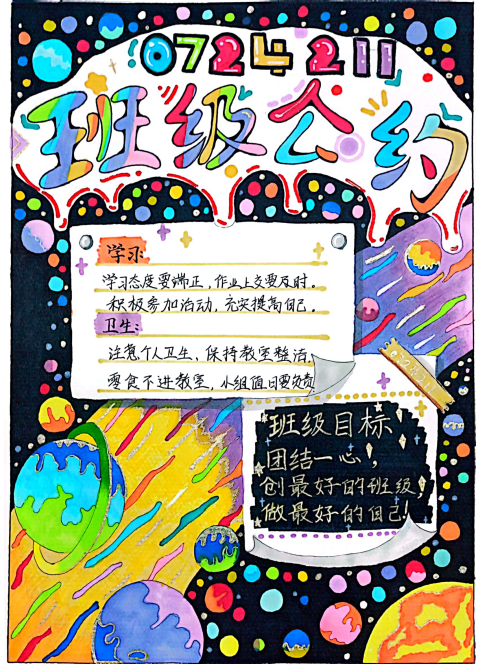 0724211
班级公约
学习:
学习态度要端正,作业上交要及时。
积极参加活动,充实提高自己。
卫生:
注意个人卫生,保持教室整洁
零食不进教室,小组值日要负责
班级目标
团结一心,
创最好的班级,
做最好的自己!